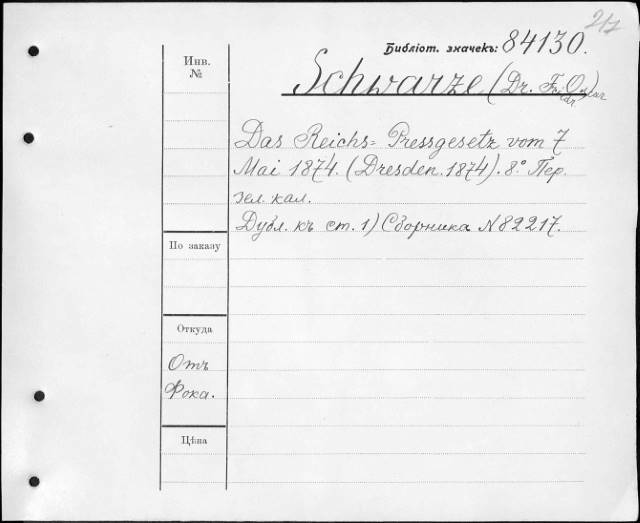 217
Библіот. значекъ: 84130.
Инв.
№
Schwarze (Dr. Fr. Oscar)
Das Reichs= Pressgesetz vom 7
Mai 1874. (Dresden. 1874). 8.° Пер.
зел. кал.
Дубл. къ ст. 1) Сборника N 82217.
По заказу
Откуда
Отъ
Фока.
Цѣна